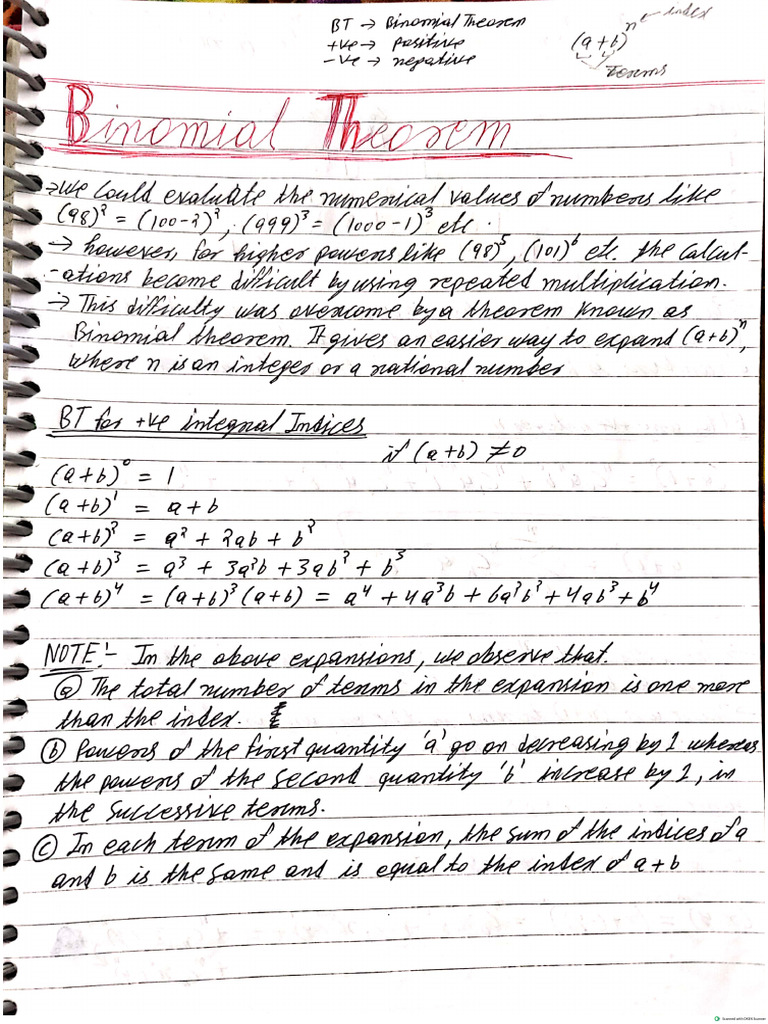 BT → Binomial Theorem
+ve → positive
-ve → negative
(a+b)ⁿ ← index
Terms
Binomial Theorem
→ We could evaluate the numerical values of numbers like
(98)² = (100-2)², (999)³ = (1000-1)³ etc.
→ however, for higher powers like (98)⁵, (101)⁶ etc. the calcul-
-ations become difficult by using repeated multiplication.
→ This difficulty was overcome by a theorem known as
Binomial theorem. It gives an easier way to expand (a+b)ⁿ,
where n is an integer or a rational number
BT for +ve integral Indices
if (a+b) ≠ 0
(a+b)⁰ = 1
(a+b)¹ = a+b
(a+b)² = a² + 2ab + b²
(a+b)³ = a³ + 3a²b + 3ab² + b³
(a+b)⁴ = (a+b)³ (a+b) = a⁴ + 4a³b + 6a²b² + 4ab³ + b⁴
NOTE:- In the above expansions, we observe that.
(a) The total number of terms in the expansion is one more
than the index.
(b) Powers of the first quantity 'a' go on decreasing by 1 whereas
the powers of the second quantity 'b' increase by 1, in
the successive terms.
(c) In each term of the expansion, the sum of the indices of a
and b is the same and is equal to the index of a+b
Scanned with OKEN Scanner